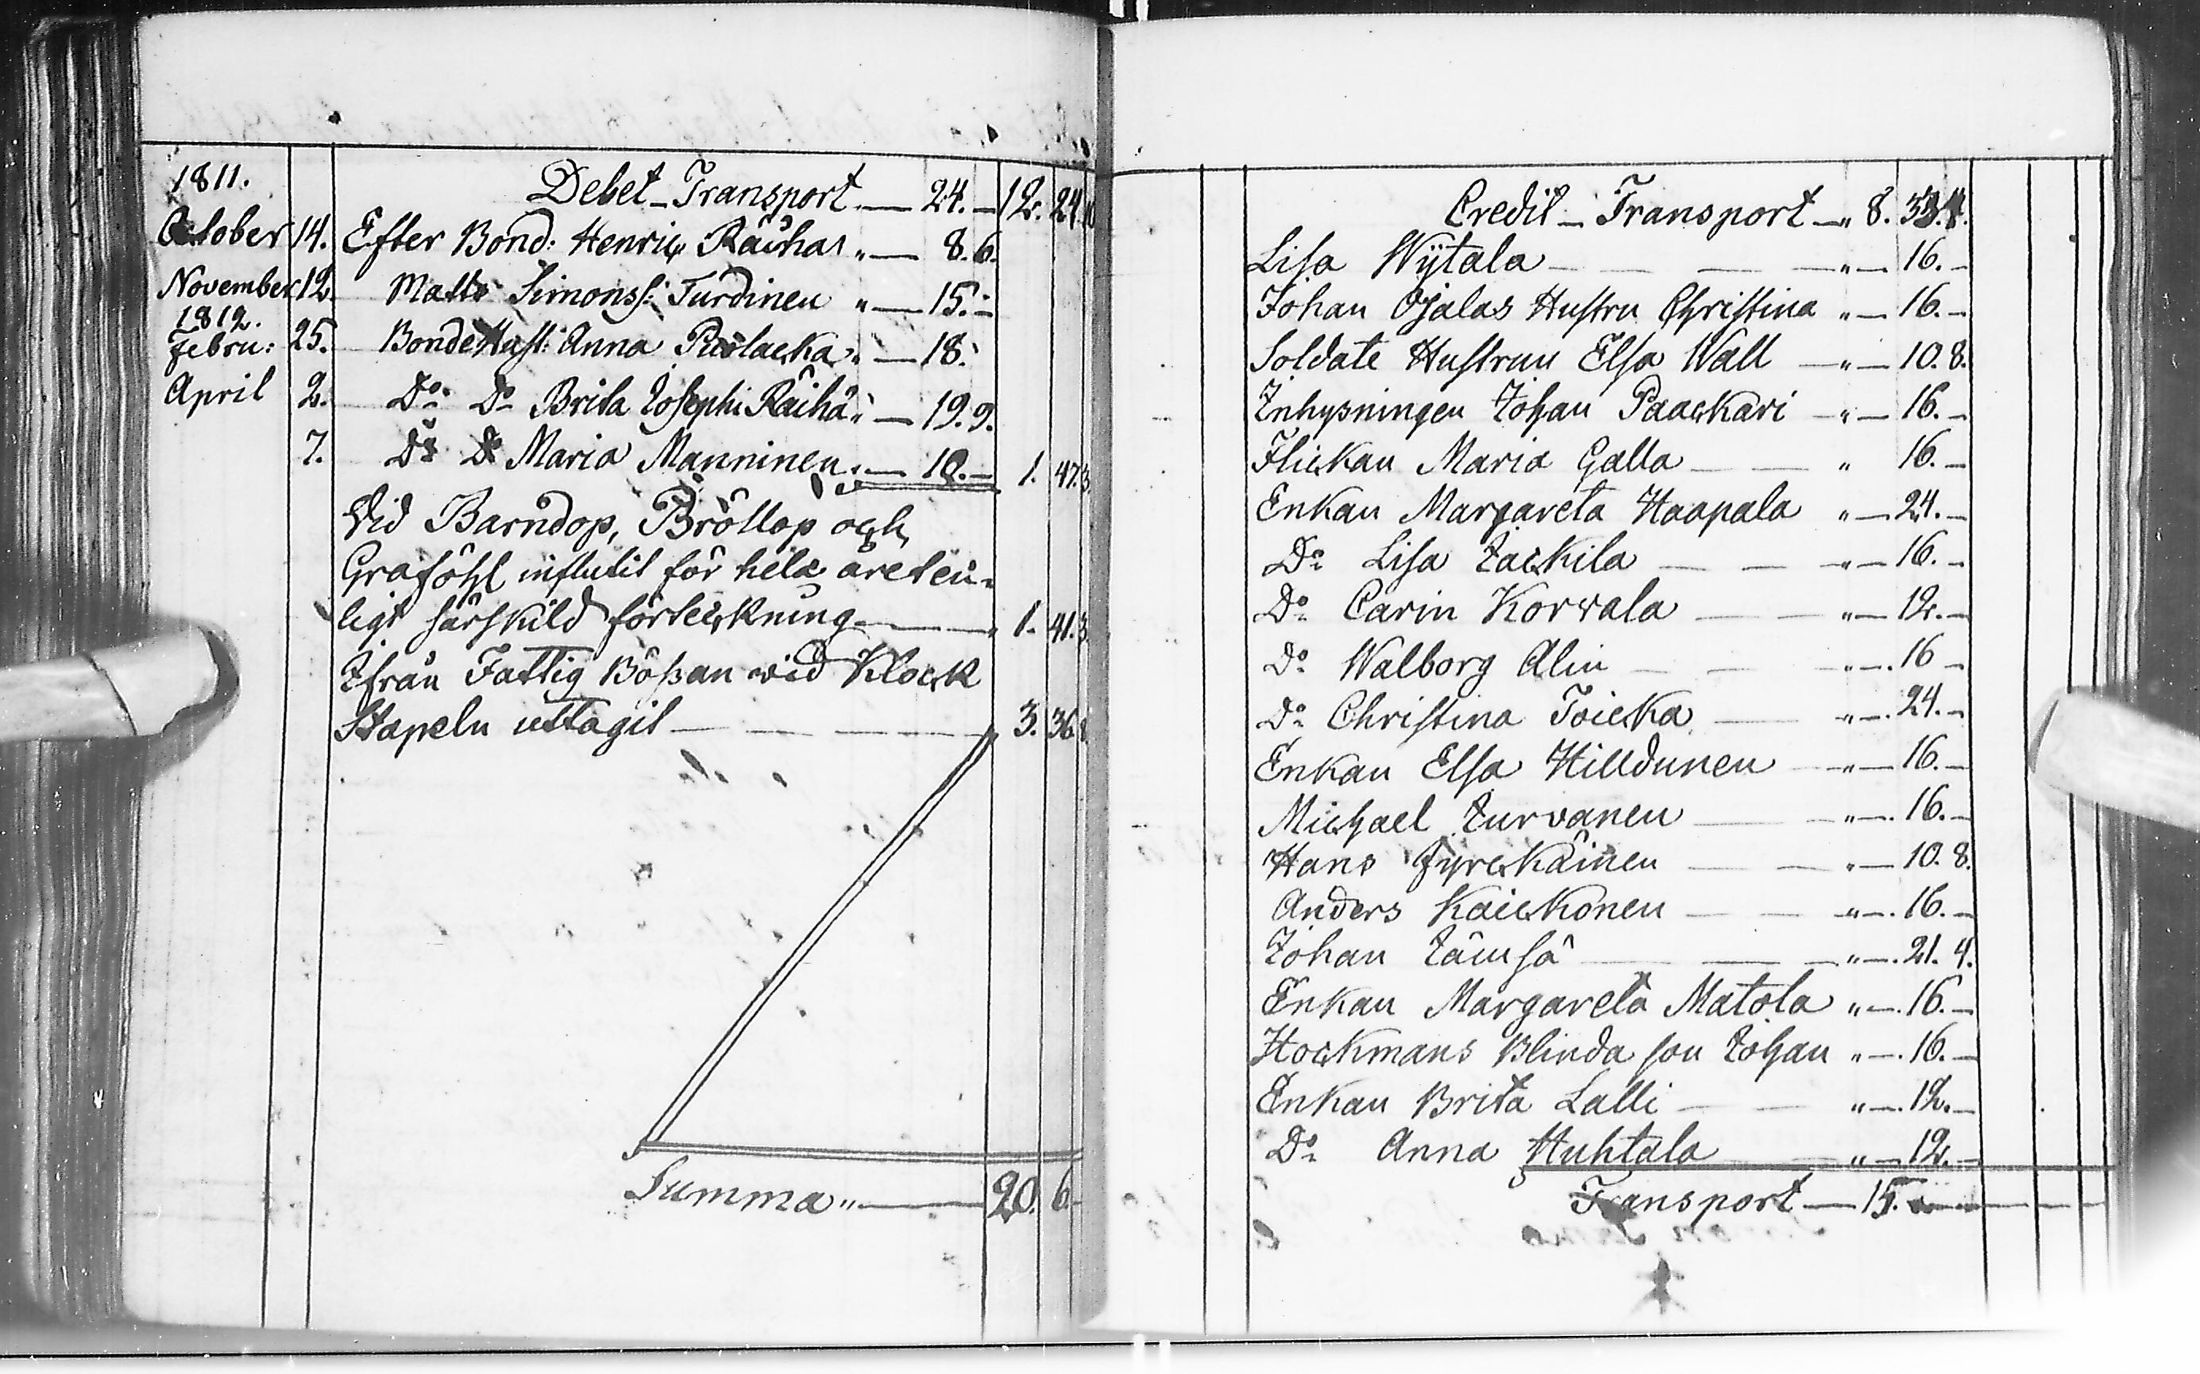 1811.
Debet-Transport — 24. — 12. 24.
October 14. Efter Bond: Henric Räihä „ — 8. 6.
November 12. Matts Simonss: Turdinen „ — 15. —
1812.
Febru: 25. Bonde Hust: Anna Puolacka „ — 18.
April 2. Do Do Brita Josephi Räihä „ — 19. 9.
7. Do Do Maria Manninen „ — 10. — 1. 47. 3.
Vid Barndop, Bröllop och
Graföhl influtit för hela året en-
ligt särskild förteckning — „ 1. 41. 3.
Ifrån Fattig Bössan wid Klock
Stapeln uttagit — — — 3. 36. 8.
Summa „ — 20. 6. —
Credit - Transport — „ 8. 33. 4.
Lisa Wÿtala — — — „ — 16. —
Johan Ojalas Hustru Christina „ — 16. —
Soldate Hustrun Elsa Wall — „ — 10. 8.
Inhysningen Johan Paackari — „ — 16. —
Flickan Maria Galla — — „ 16. —
Enkan Margareta Haapala „ — 24. —
Do Lisa Jackila — — „ — 16. —
Do Carin Korvala — — „ — 12. —
Do Walborg Alin — — „ — 16 —
Do Christina Toicka — „ — 24. —
Enkan Elsa Hilldunen — „ — 16. —
Michael Turvanen — — „ — 16. —
Hans Jyrckäinen — — „ — 10. 8.
Anders Kaickonen — — „ — 16. —
Johan Jämsä — — „ — 21. 4.
Enkan Margareta Matola „ — 16. —
Hockmans Blinda son Johan „ — 16. —
Enkan Brita Lalli — — „ — 12. —
Do Anna Huhtala — „ — 12. —
Transport — 15. —